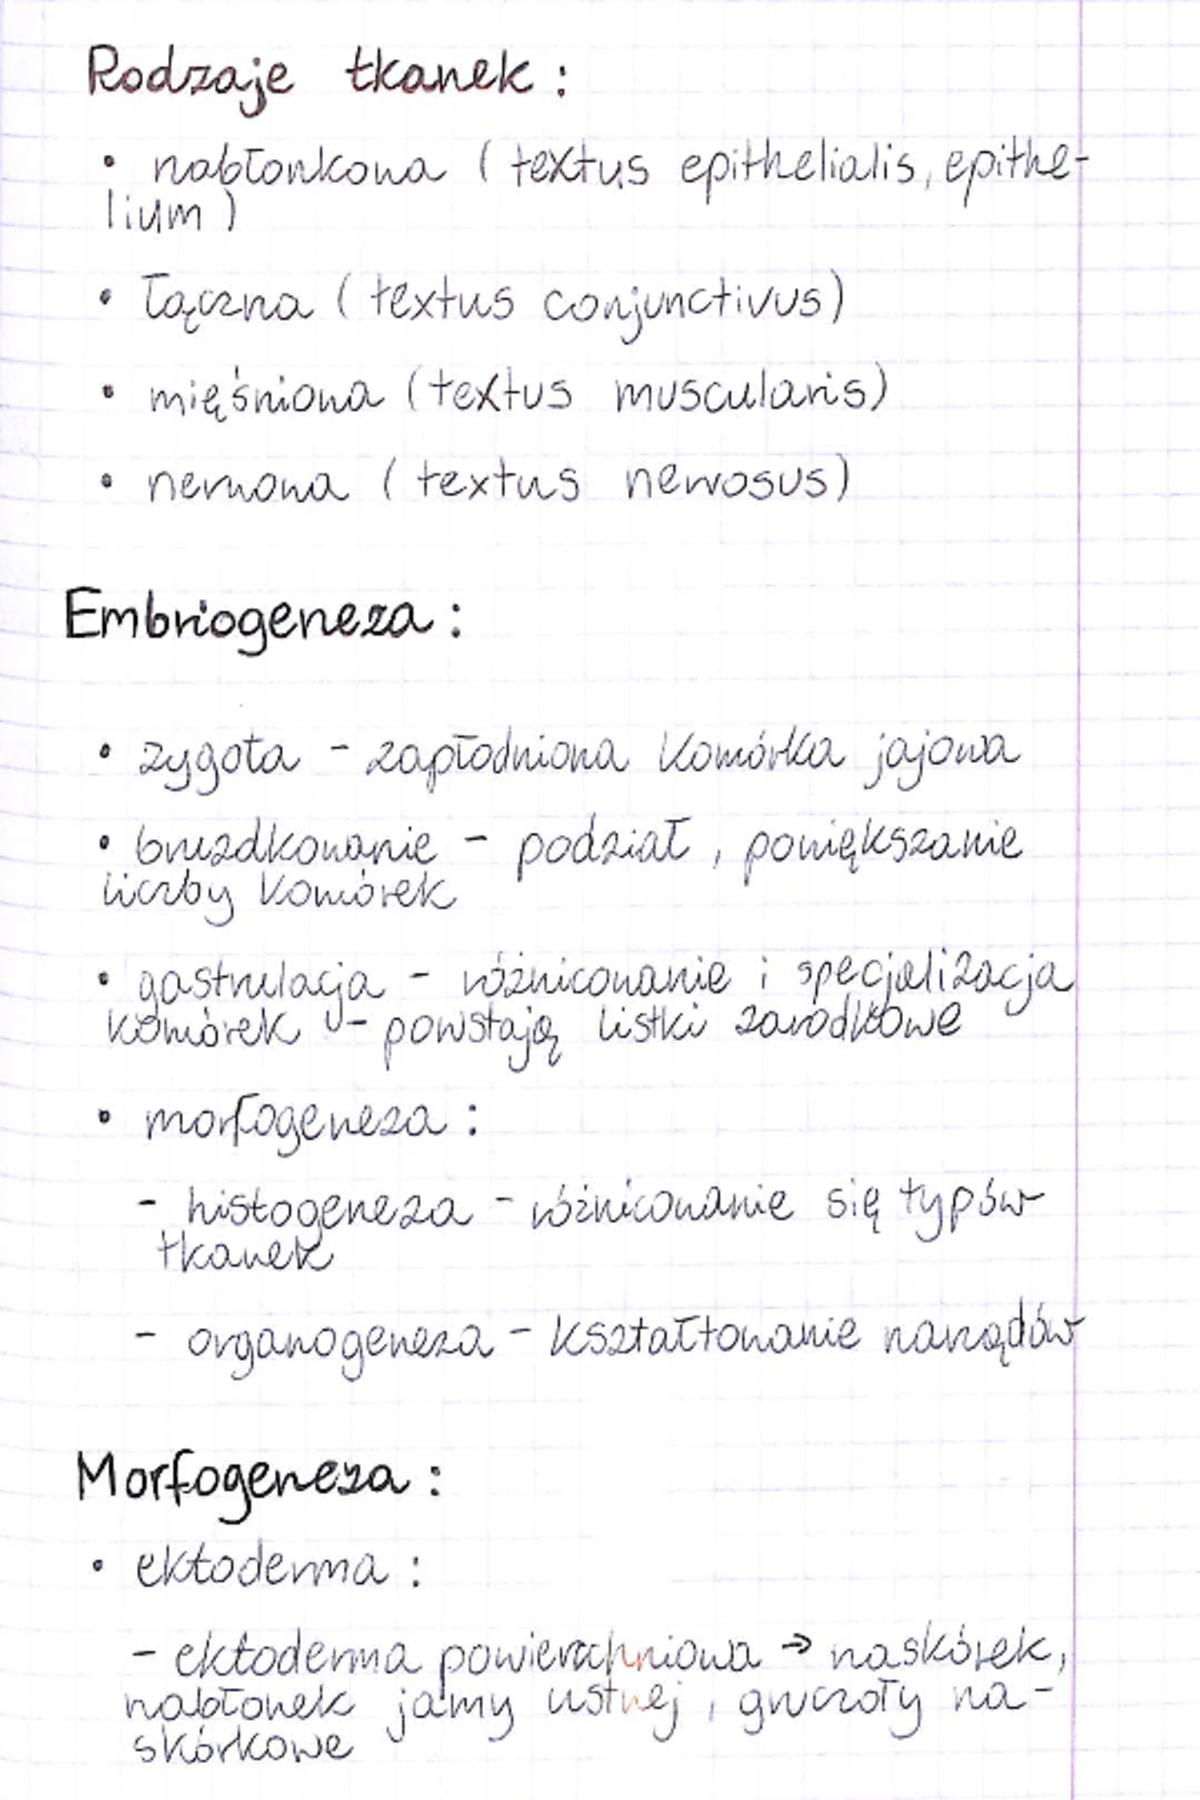 Rodzaje tkanek :
• nabłonkowa ( textus epithelialis, epithe-
lium )
• łączna ( textus conjunctivus )
• mięśniowa ( textus muscularis )
• nerwowa ( textus nervosus )
Embriogeneza :
• zygota - zapłodniona komórka jajowa
• bruzdkowanie - podział , powiększanie
liczby komórek
• gastrulacja - różnicowanie i specjalizacja
komórek - powstają listki zarodkowe
• morfogeneza :
- histogeneza - różnicowanie się typów
tkanek
- organogeneza - kształtowanie narządów
Morfogeneza :
• ektoderma :
- ektoderma powierzchniowa → naskórek,
nabłonek jamy ustnej , gruczoły na-
skórkowe